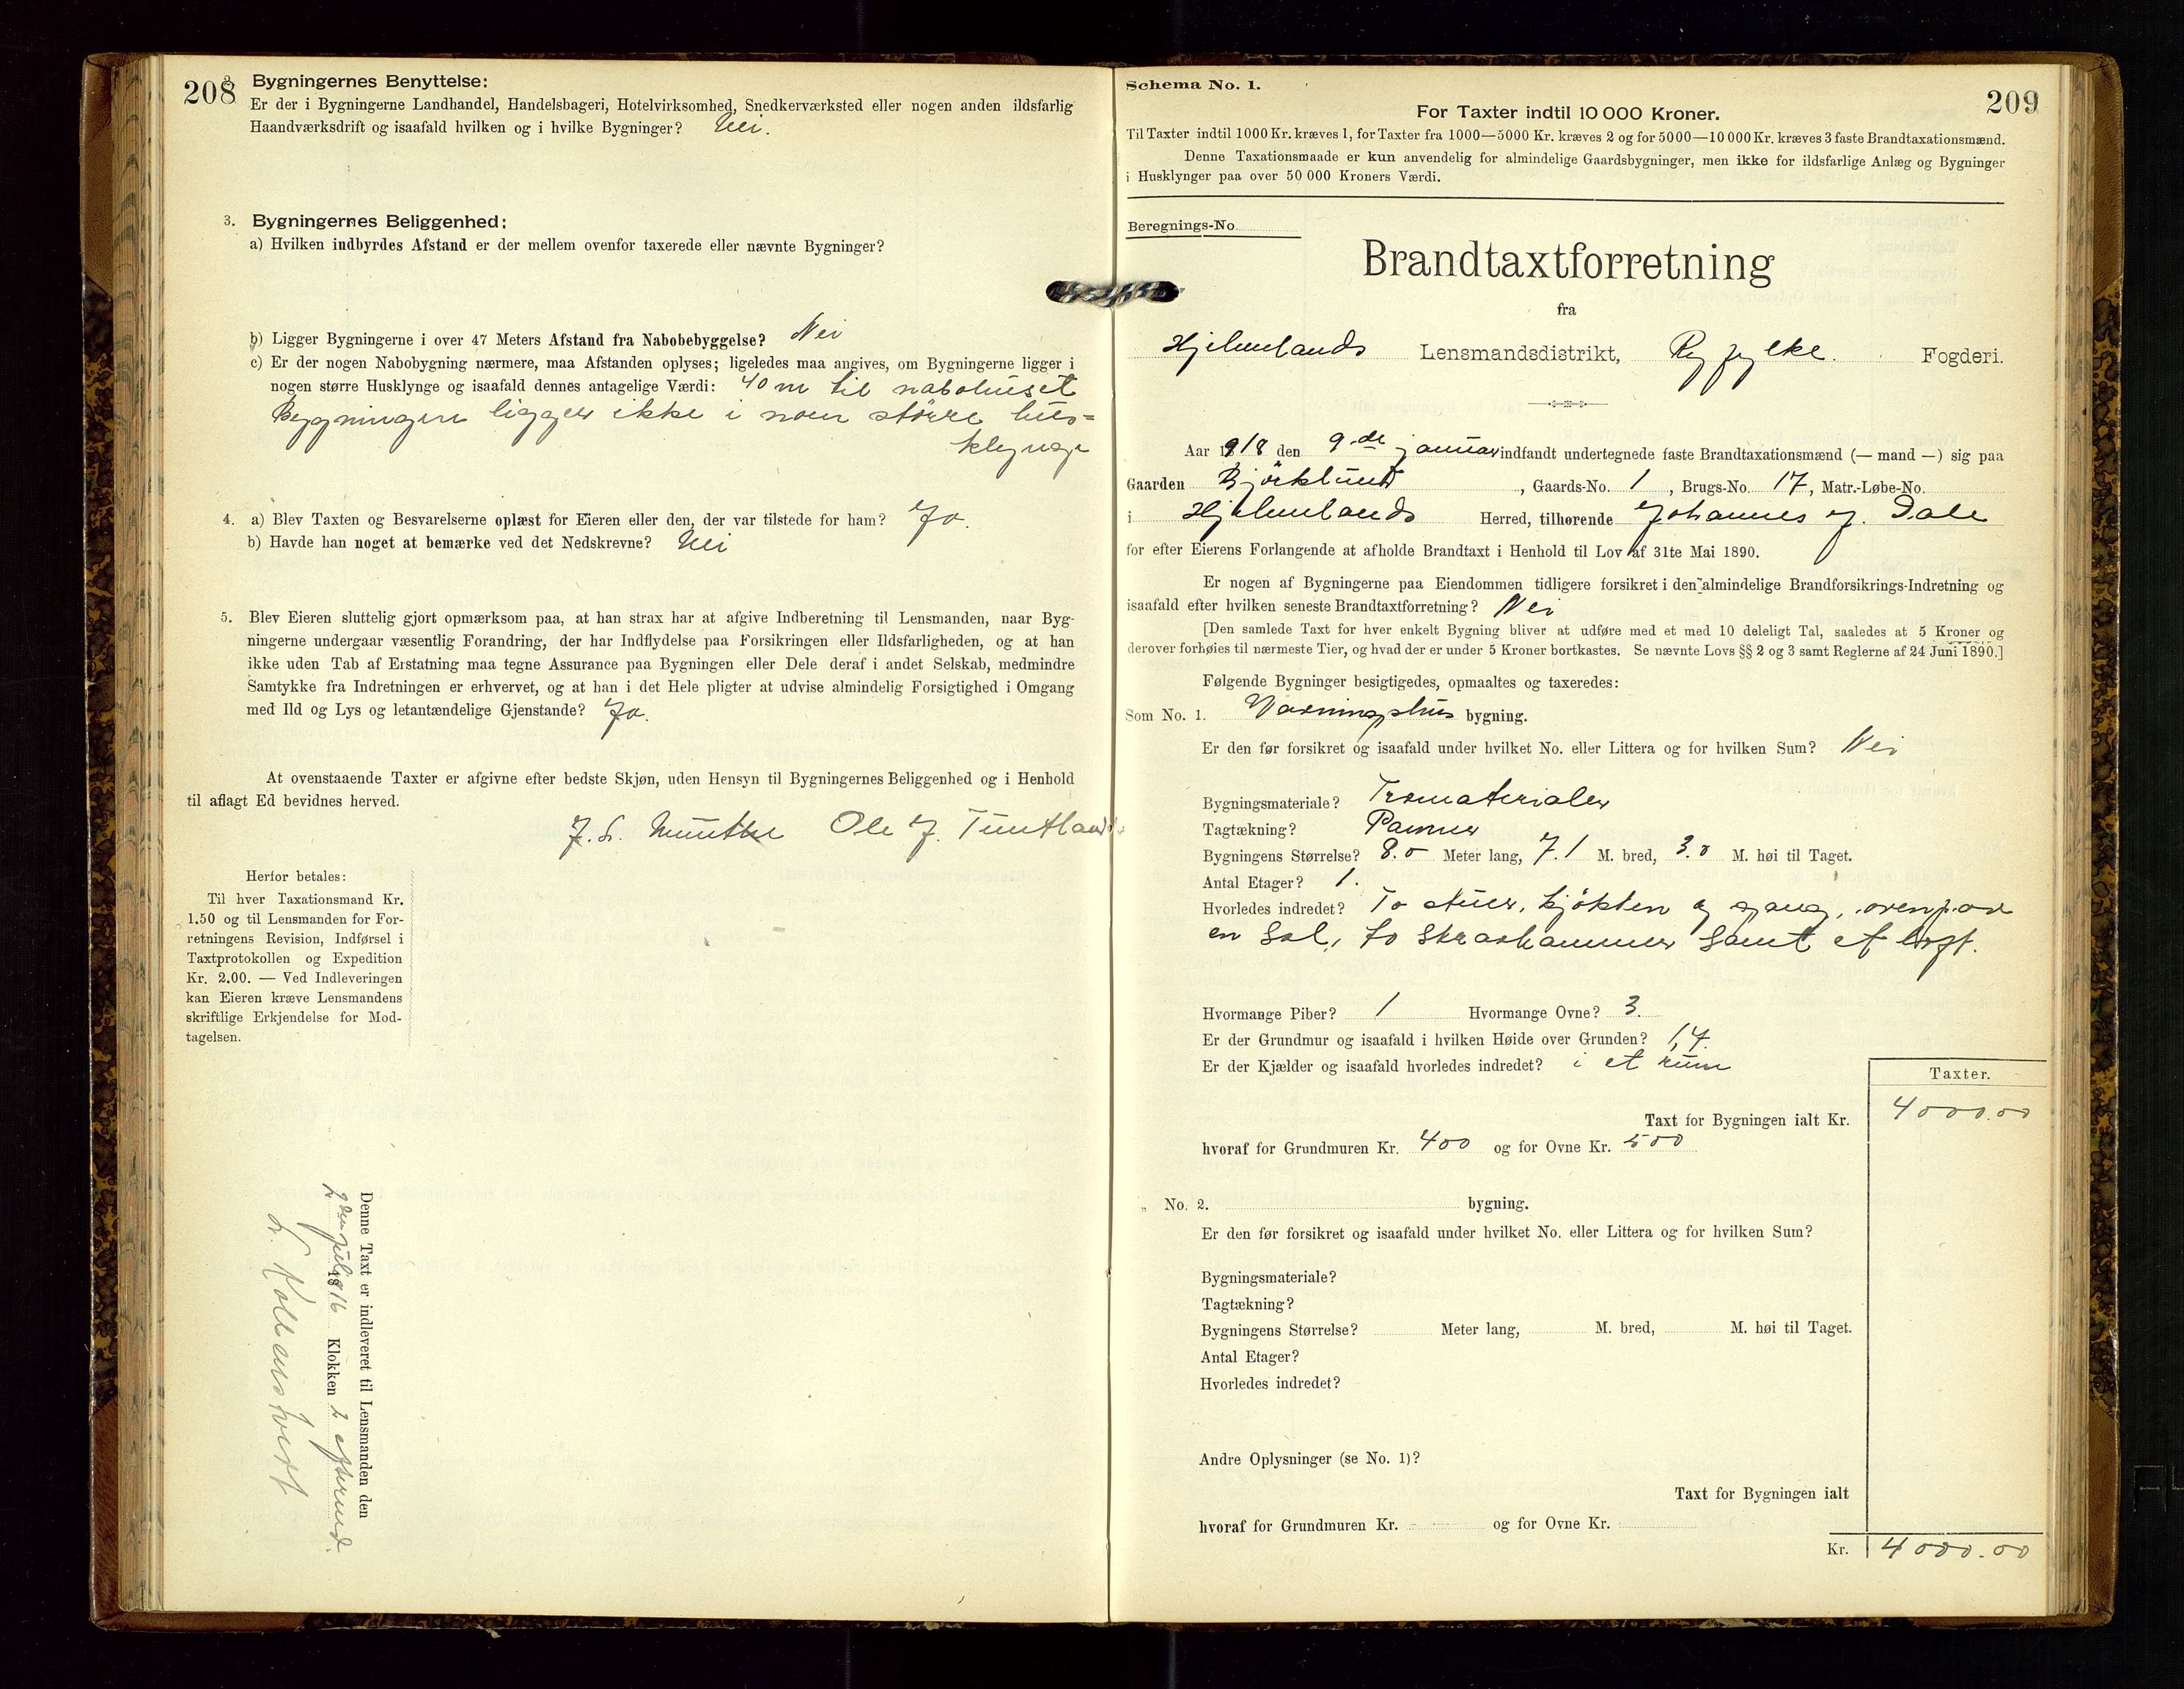 208
2. Bygningernes Benyttelse:
Er der i Bygningerne Landhandel, Handelsbageri, Hotelvirksomhed, Snedkerværksted eller nogen anden ildsfarlig
Haandværksdrift og isaafald hvilken og i hvilke Bygninger? Nei.
3. Bygningernes Beliggenhed:
a) Hvilken indbyrdes Afstand er der mellem ovenfor taxerede eller nævnte Bygninger?
b) Ligger Bygningerne i over 47 Meters Afstand fra Nabobebyggelse? Nei
c) Er der nogen Nabobygning nærmere, maa Afstanden oplyses; ligeledes maa angives, om Bygningerne ligger i
nogen større Husklynge og isaafald dennes antagelige Værdi: 40 m til nabohuset
Bygningen ligger ikke i noen større hus=
klynge
4. a) Blev Taxten og Besvarelserne oplæst for Eieren eller den, der var tilstede for ham? Ja.
b) Havde han noget at bemærke ved det Nedskrevne? Nei
5. Blev Eieren sluttelig gjort opmærksom paa, at han strax har at afgive Indberetning til Lensmanden, naar Byg-
ningerne undergaar væsentlig Forandring, der har Indflydelse paa Forsikringen eller Ildsfarligheden, og at han
ikke uden Tab af Erstatning maa tegne Assurance paa Bygningen eller Dele deraf i andet Selskab, medmindre
Samtykke fra Indretningen er erhvervet, og at han i det Hele pligter at udvise almindelig Forsigtighed i Omgang
med Ild og Lys og letantændelige Gjenstande? Ja.
At ovenstaaende Taxter er afgivne efter bedste Skjøn, uden Hensyn til Bygningernes Beliggenhed og i Henhold
til aflagt Ed bevidnes herved.
J. S. Munthe Ole J. Tuntland
Herfor betales:
Til hver Taxationsmand Kr.
1.50 og til Lensmanden for For-
retningens Revision, Indførsel i
Taxtprotokollen og Expedition
Kr. 2.00. — Ved Indleveringen
kan Eieren kræve Lensmandens
skriftlige Erkjendelse for Mod-
tagelsen.
Denne Taxt er indleveret til Lensmanden den
2den juli 1916 Klokken 2 eftermd.
209
Schema No. 1.
For Taxter indtil 10 000 Kroner.
Til Taxter indtil 1000 Kr. kræves 1, for Taxter fra 1000—5000 Kr. kræves 2 og for 5000—10 000 Kr. kræves 3 faste Brandtaxationsmænd.
Denne Taxationsmaade er kun anvendelig for almindelige Gaardsbygninger, men ikke for ildsfarlige Anlæg og Bygninger
i Husklynger paa over 50 000 Kroners Værdi.
Beregnings-No.
Brandtaxtforretning
fra
Hjelmelands Lensmandsdistrikt, Ryfylke. Fogderi.
Aar 1918 den 9.de januar indfandt undertegnede faste Brandtaxationsmænd (— mand —) sig paa
Gaarden Bjørklund, Gaards-No. 1, Brugs-No. 17, Matr.-Løbe-No.
i Hjelmelands Herred, tilhørende Johannes J. Dale
for efter Eierens Forlangende at afholde Brandtaxt i Henhold til Lov af 31te Mai 1890.
Er nogen af Bygningerne paa Eiendommen tidligere forsikret i den almindelige Brandforsikrings-Indretning og
isaafald efter hvilken seneste Brandtaxtforretning? Nei
[Den samlede Taxt for hver enkelt Bygning bliver at udføre med et med 10 deleligt Tal, saaledes at 5 Kroner og
derover forhøies til nærmeste Tier, og hvad der er under 5 Kroner bortkastes. Se nævnte Lovs §§ 2 og 3 samt Reglerne af 24 Juni 1890.]
Følgende Bygninger besigtigedes, opmaaltes og taxeredes:
Som No. 1. Vaaningshus bygning.
Er den før forsikret og isaafald under hvilket No. eller Littera og for hvilken Sum? Nei
Bygningsmateriale? Træmaterialer
Tagtækning? Panner
Bygningens Størrelse? 8.0 Meter lang, 7.1 M. bred, 3.0 M. høi til Taget.
Antal Etager? 1.
Hvorledes indredet? To stuer, kjøkken og gang, ovenpaa
en Sal, to Skraakammer samt et loft.
Hvormange Piber? 1 Hvormange Ovne? 3.
Er der Grundmur og isaafald i hvilken Høide over Grunden? 1,4.
Er der Kjælder og isaafald hvorledes indredet? i et rum
Taxter.
Taxt for Bygningen ialt Kr. 4000.00
hvoraf for Grundmuren Kr. 400 og for Ovne Kr. 500
„ No. 2. bygning.
Er den før forsikret og isaafald under hvilket No. eller Littera og for hvilken Sum?
Bygningsmateriale?
Tagtækning?
Bygningens Størrelse? Meter lang, M. bred, M. høi til Taget.
Antal Etager?
Hvorledes indredet?
Andre Oplysninger (se No. 1)?
Taxt for Bygningen ialt
hvoraf for Grundmuren Kr. og for Ovne Kr.
Kr. 4000.00